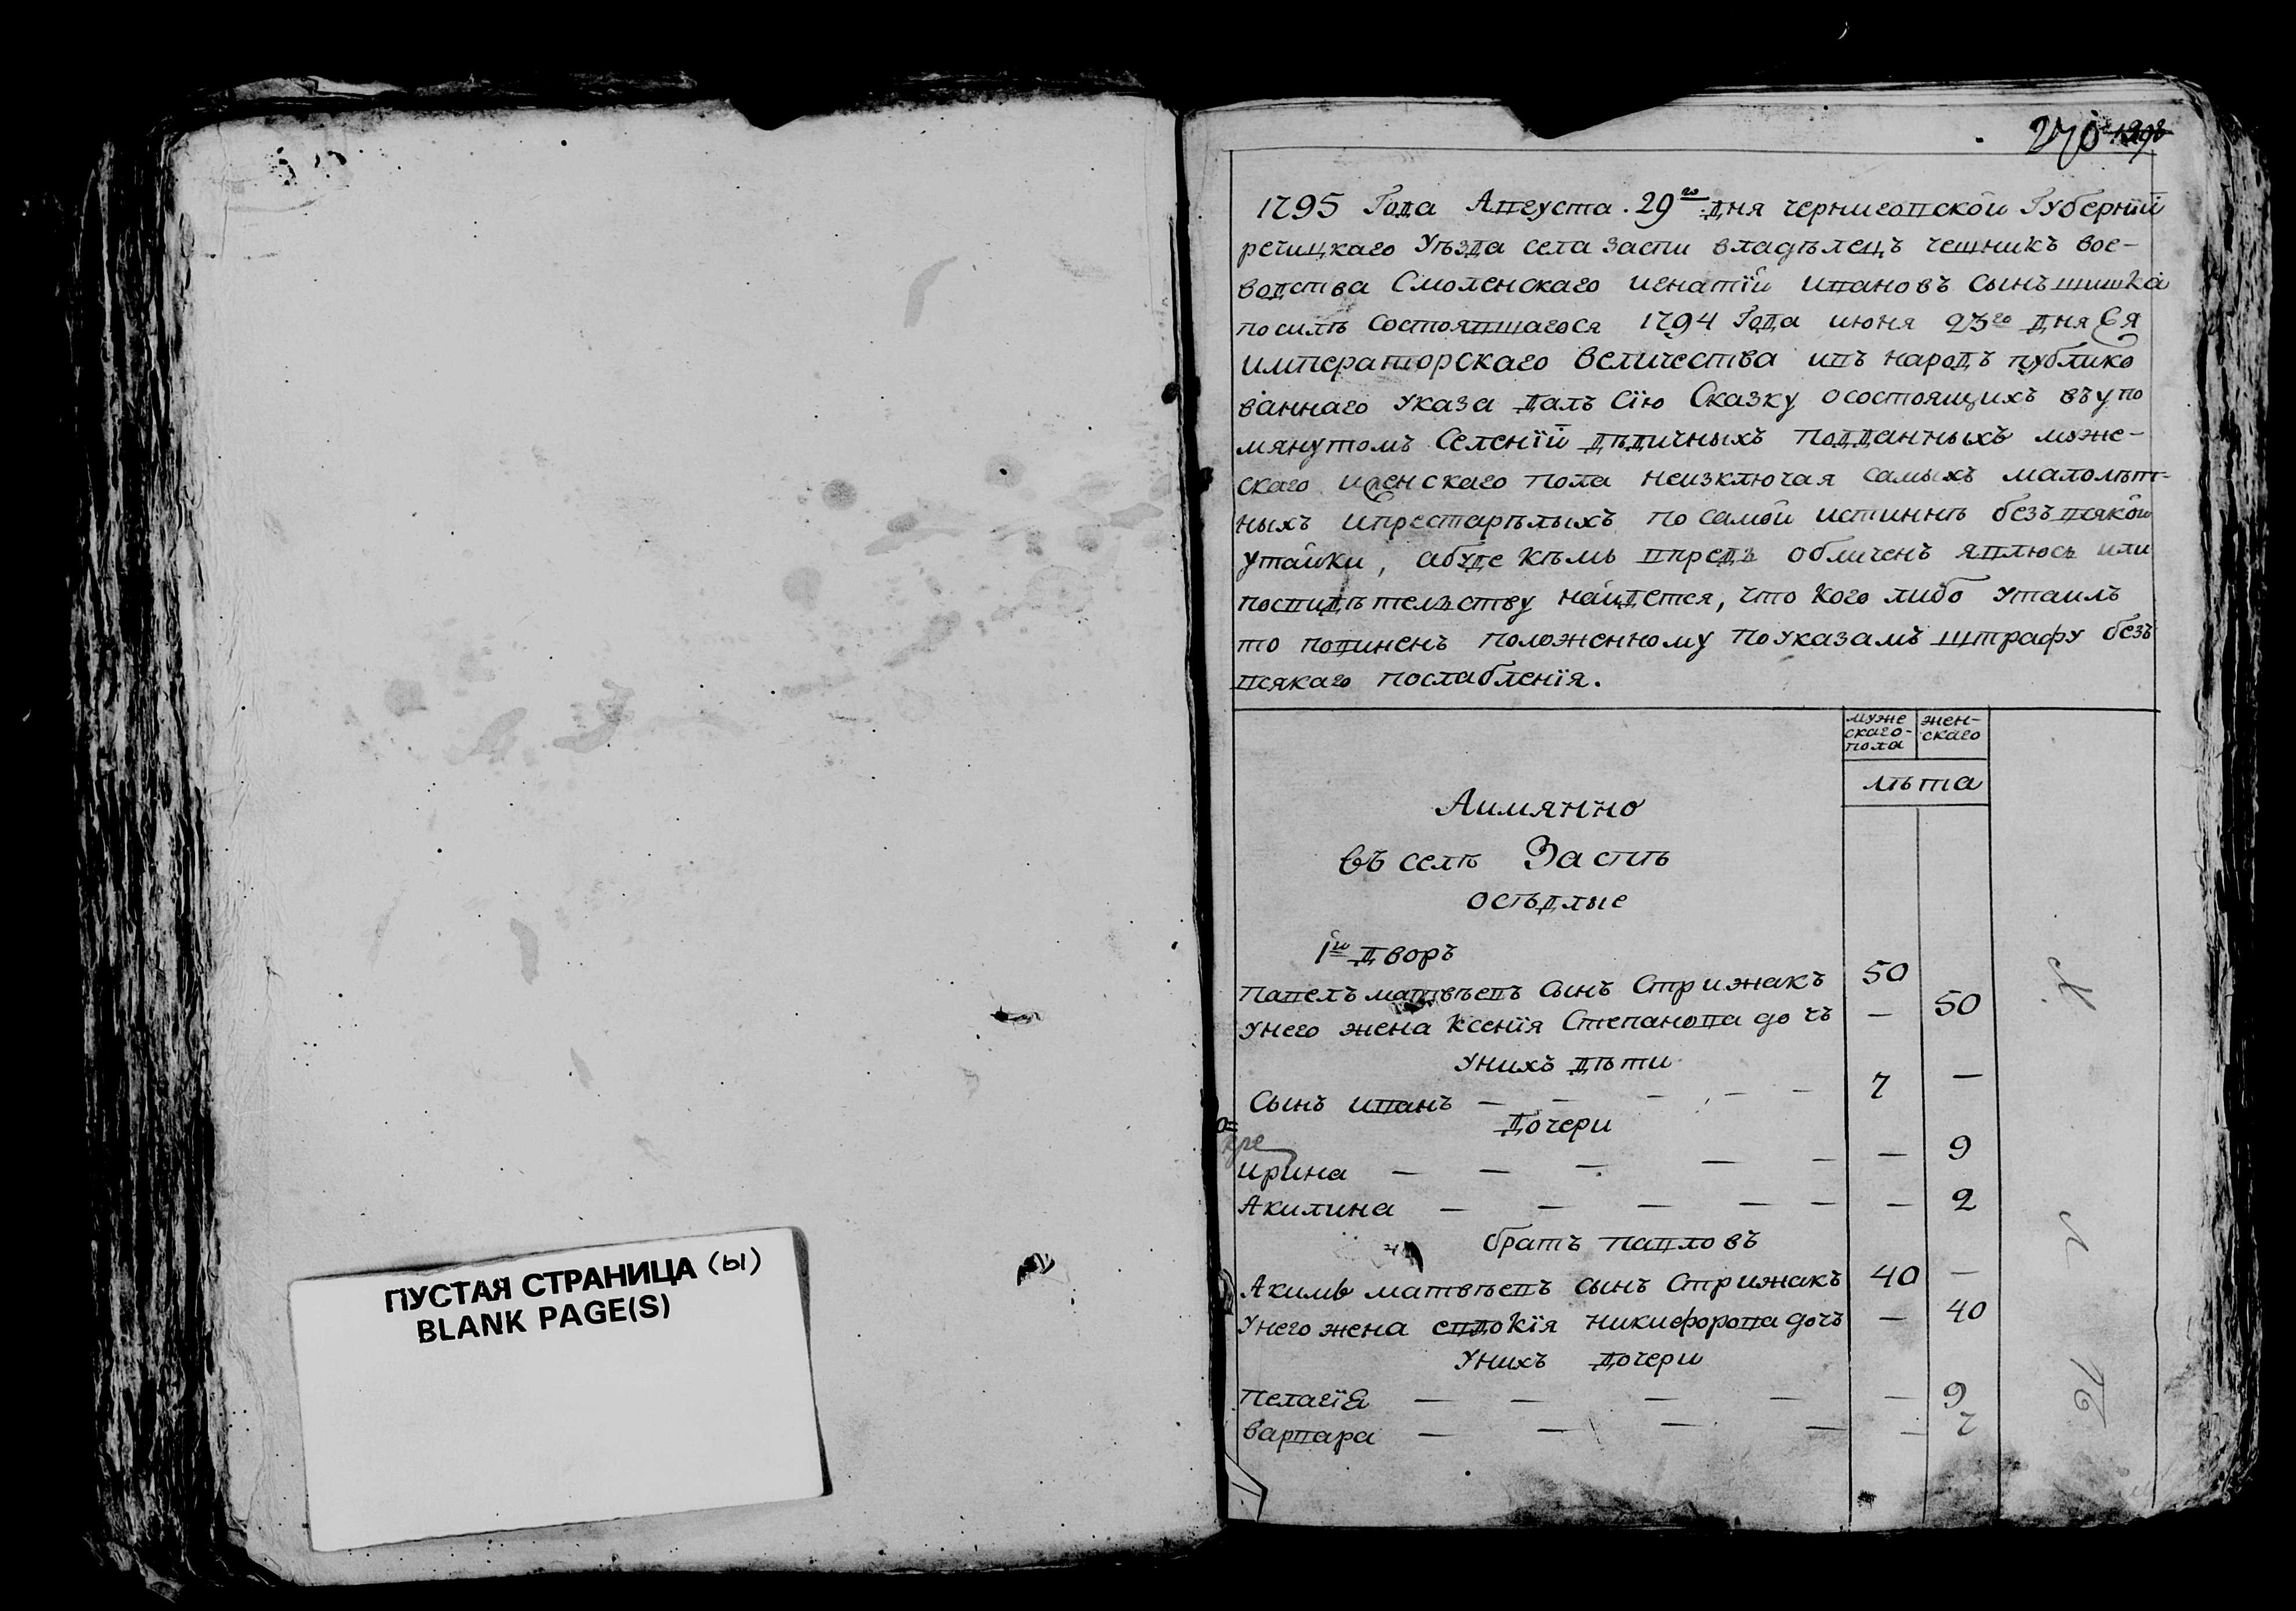 ПУСТАЯ СТРАНИЦА (ы)
BLANK PAGE(S)
270
1795 Года Августа. 29го дня черниговской Губернїй
речицкаго Уѣзда села заспи владѣлецъ чешникъ вое-
водства Смоленскаго игнатїй ивановъ сынъ шишка
по силѣ состоявшагося 1794 Года июня 23го дня Ея
императорскаго величества ивъ народъ публико
ваннаго указа далъ сїю Сказку осостоящихъ въ упо
мянутомъ Селенїй дѣдичныхъ подданныхъ муже-
скаго иженскаго пола неизключая самыхъ малолѣт-
ныхъ ипрестарѣлыхъ по самой истиннѣ безъ всякой
утайки, абуде кѣмъ впредъ обличенъ явлюсь или
посвидѣтельству найдется, что кого либо утаилъ
то повиненъ положенному по указамъ штрафу безъ
всякаго послабленїя.
муже скаго- пола жен- скаго
лѣта
Аимянно
въ селѣ Заспѣ
осѣдлые
1й дворъ
павелъ матвѣевъ сынъ Стрижакъ 50
Унего жена ксенїя Степанова дочъ — 50
Унихъ дѣти
Сынъ иванъ — — — — — 7 —
Дочери
ирина — — — — — — 9
Акилина — — — — — — 2
братъ павловъ
Акимъ матвѣевъ сынъ Стрижакъ 40 —
Унего жена евдокїя никифорова дочъ — 40
Унихъ дочери
пелагїя — — — — — 9
варвара — — — — — 7